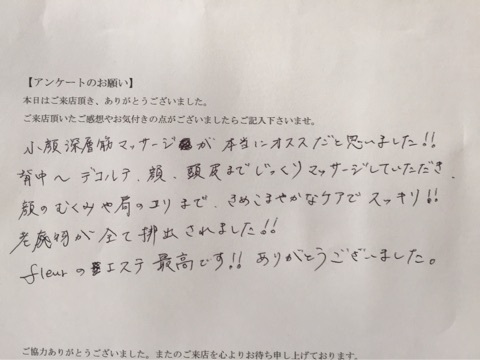 【アンケートのお願い】
本日はご来店頂き、ありがとうございました。
ご来店頂いたご感想やお気付きの点がございましたらご記入下さいませ。
小顔深層筋マッサージが本当にオススだと思いました!!
背中〜デコルテ、顔、頭皮までじっくりマッサージしていただき、
顔のむくみや肩のコリまで、きめこまやかなケアでスッキリ!!
老廃物が全て排出されました!!
fleurのエステ最高です!!ありがとうございました。
ご協力ありがとうございました。またのご来店を心よりお待ち申し上げております。